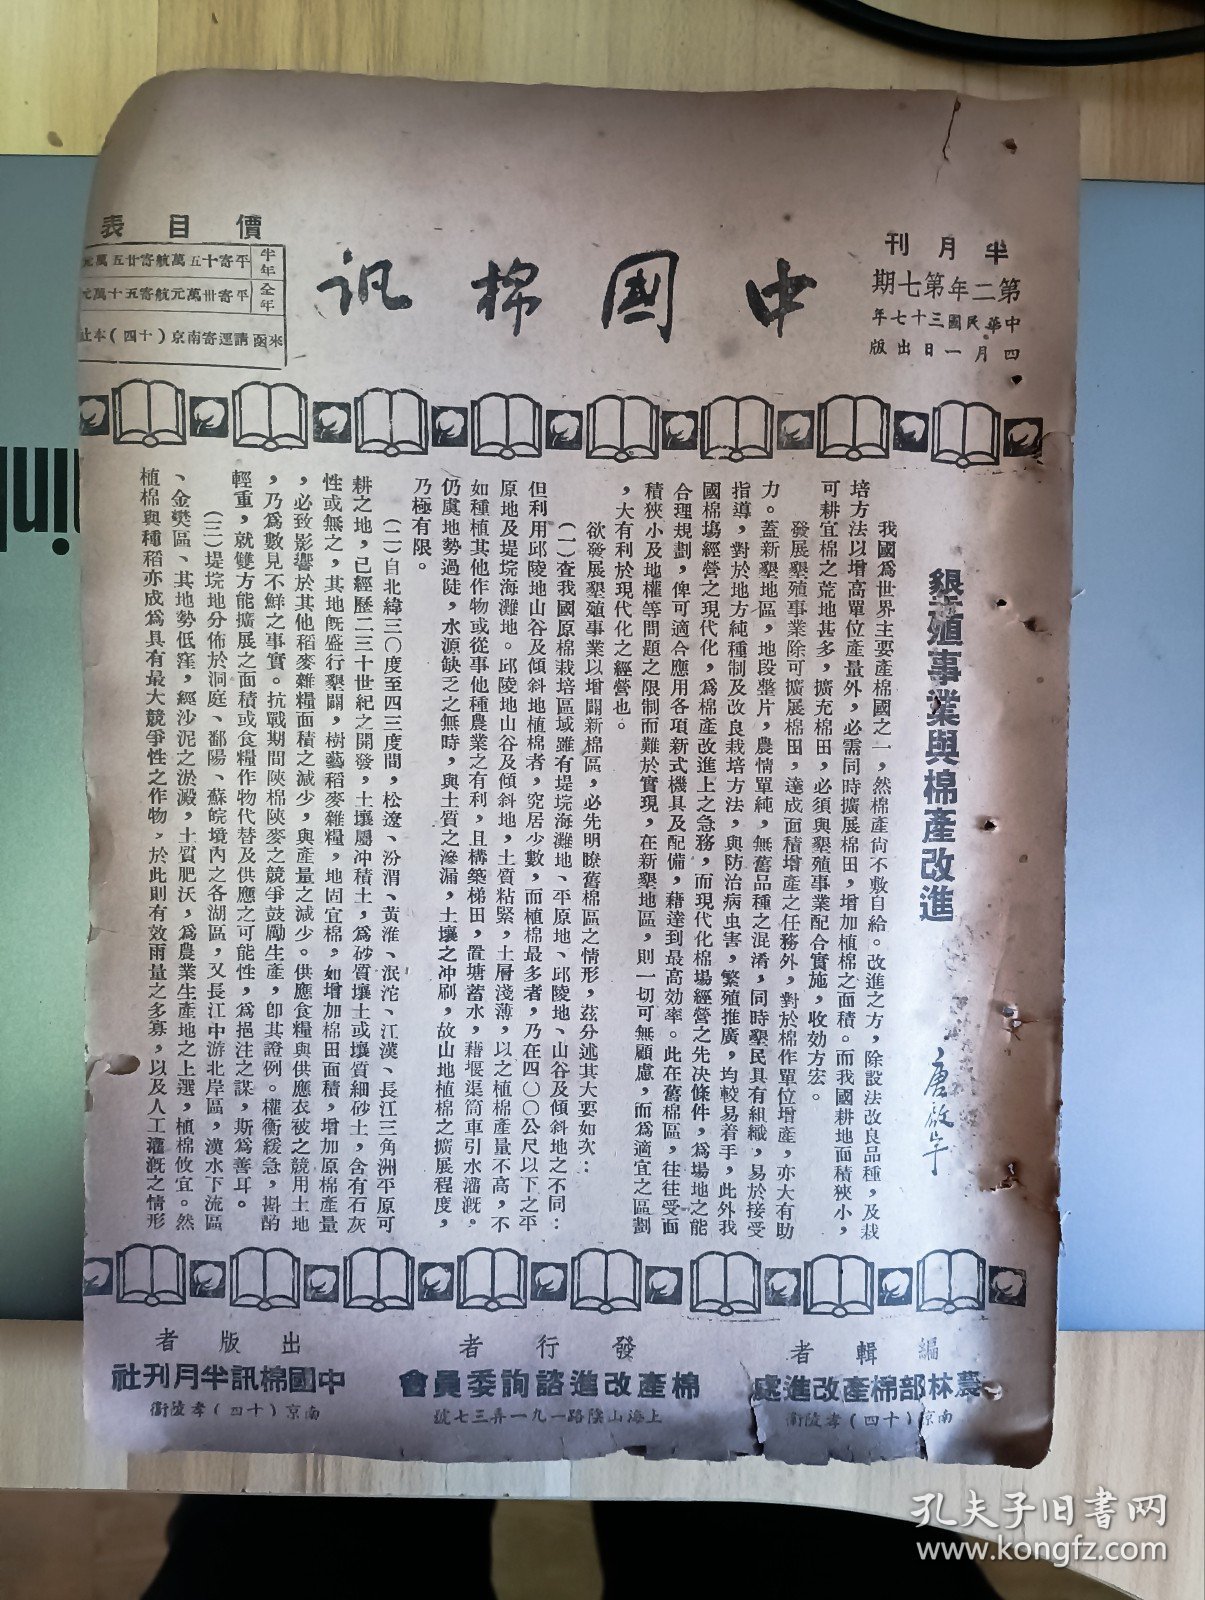 中國棉訊
半月刊
第二年第七期
中華民國三十七年
四月一日出版
價目表
半年
平寄十五萬航寄廿五萬元
全年
平寄卅萬元航寄五十萬元
來函請逕寄南京(十四)本社
墾殖事業與棉產改進
唐啟宇
我國為世界主要產棉國之一,然棉產尙不敷自給。改進之方,除設法改良品種,及栽
培方法以增高單位產量外,必需同時擴展棉田,增加植棉之面積。而我國耕地面積狹小,
可耕宜棉之荒地甚多,擴充棉田,必須與墾殖事業配合實施,收効方宏。
發展墾殖事業除可擴展棉田,達成面積增產之任務外,對於棉作單位增產,亦大有助
力。蓋新墾地區,地段整片,農情單純,無舊品種之混淆,同時墾民具有組織,易於接受
指導,對於地方純種制及改良栽培方法,與防治病虫害,繁殖推廣,均較易着手,此外我
國棉塲經營之現代化,為棉產改進上之急務,而現代化棉場經營之先决條件,為場地之能
合理規劃,俾可適合應用各項新式機具及配備,藉達到最高効率。此在舊棉區,往往受面
積狹小及地權等問題之限制而難於實現,在新墾地區,則一切可無顧慮,而為適宜之區劃
,大有利於現代化之經營也。
欲發展墾殖事業以增闢新棉區,必先明瞭舊棉區之情形,茲分述其大要如次:
(一)查我國原棉栽培區域雖有堤垸海灘地、平原地、邱陵地、山谷及傾斜地之不同:
但利用邱陵地山谷及傾斜地植棉者,究居少數,而植棉最多者,乃在四〇〇公尺以下之平
原地及堤垸海灘地。邱陵地山谷及傾斜地,土質粘緊,土層淺薄,以之植棉產量不高,不
如種植其他作物或從事他種農業之有利,且構築梯田,置塘蓄水,藉堰渠筒車引水灌漑,
仍虞地勢過陡,水源缺乏之無時,與土質之滲漏,土壤之冲刷,故山地植棉之擴展程度,
乃極有限。
(二)自北緯三〇度至四三度間,松遼、汾渭、黃淮、泯沱、江漢、長江三角洲平原可
耕之地,已經歷二三十世紀之開發,土壤屬冲積土,為砂質壤土或壤質細砂土,含有石灰
性或無之,其地旣盛行墾闢,樹藝稻麥雜糧,地固宜棉,如增加棉田面積,增加原棉產量
,必致影響於其他稻麥雜糧面積之減少,與產量之減少。供應食糧與供應衣被之競用土地
,乃為數見不鮮之事實。抗戰期間陝棉陝麥之競爭鼓勵生產,卽其證例。權衡緩急,斟酌
輕重,就雙方能擴展之面積或食糧作物代替及供應之可能性,為挹注之謀,斯為善耳。
(三)堤垸地分佈於洞庭、鄱陽、蘇皖境內之各湖區,又長江中游北岸區,漢水下流區
、金樊區、其地勢低窪,經沙泥之淤澱,土質肥沃,為農業生產地之上選,植棉攸宜。然
植棉與種稻亦成為具有最大競爭性之作物,於此則有效雨量之多寡,以及人工灌漑之情形
編輯者
農林部棉產改進處
南京(十四)孝陵衛
發行者
棉產改進諮詢委員會
上海山陰路一九一弄三七號
出版者
中國棉訊半月刊社
南京(十四)孝陵衛
孔夫子旧书网
www.kongfz.com